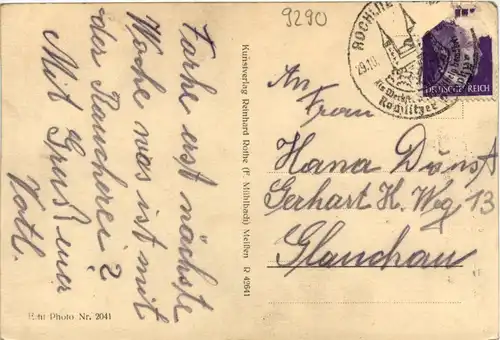 9290
Farhe erst nächste
Woche was ist mit
der Raucherei?
Mit Gruß euer
Votl.
Echt Photo Nr. 2041
Kunstverlag Reinhard Rothe (F. Mühlbach) Meißen R 42641
29.10.
Rochlitzer
DEUTSCHES REICH
An
Frau
Hana Dönst
Gerhart H. Weg 13
Glauchau